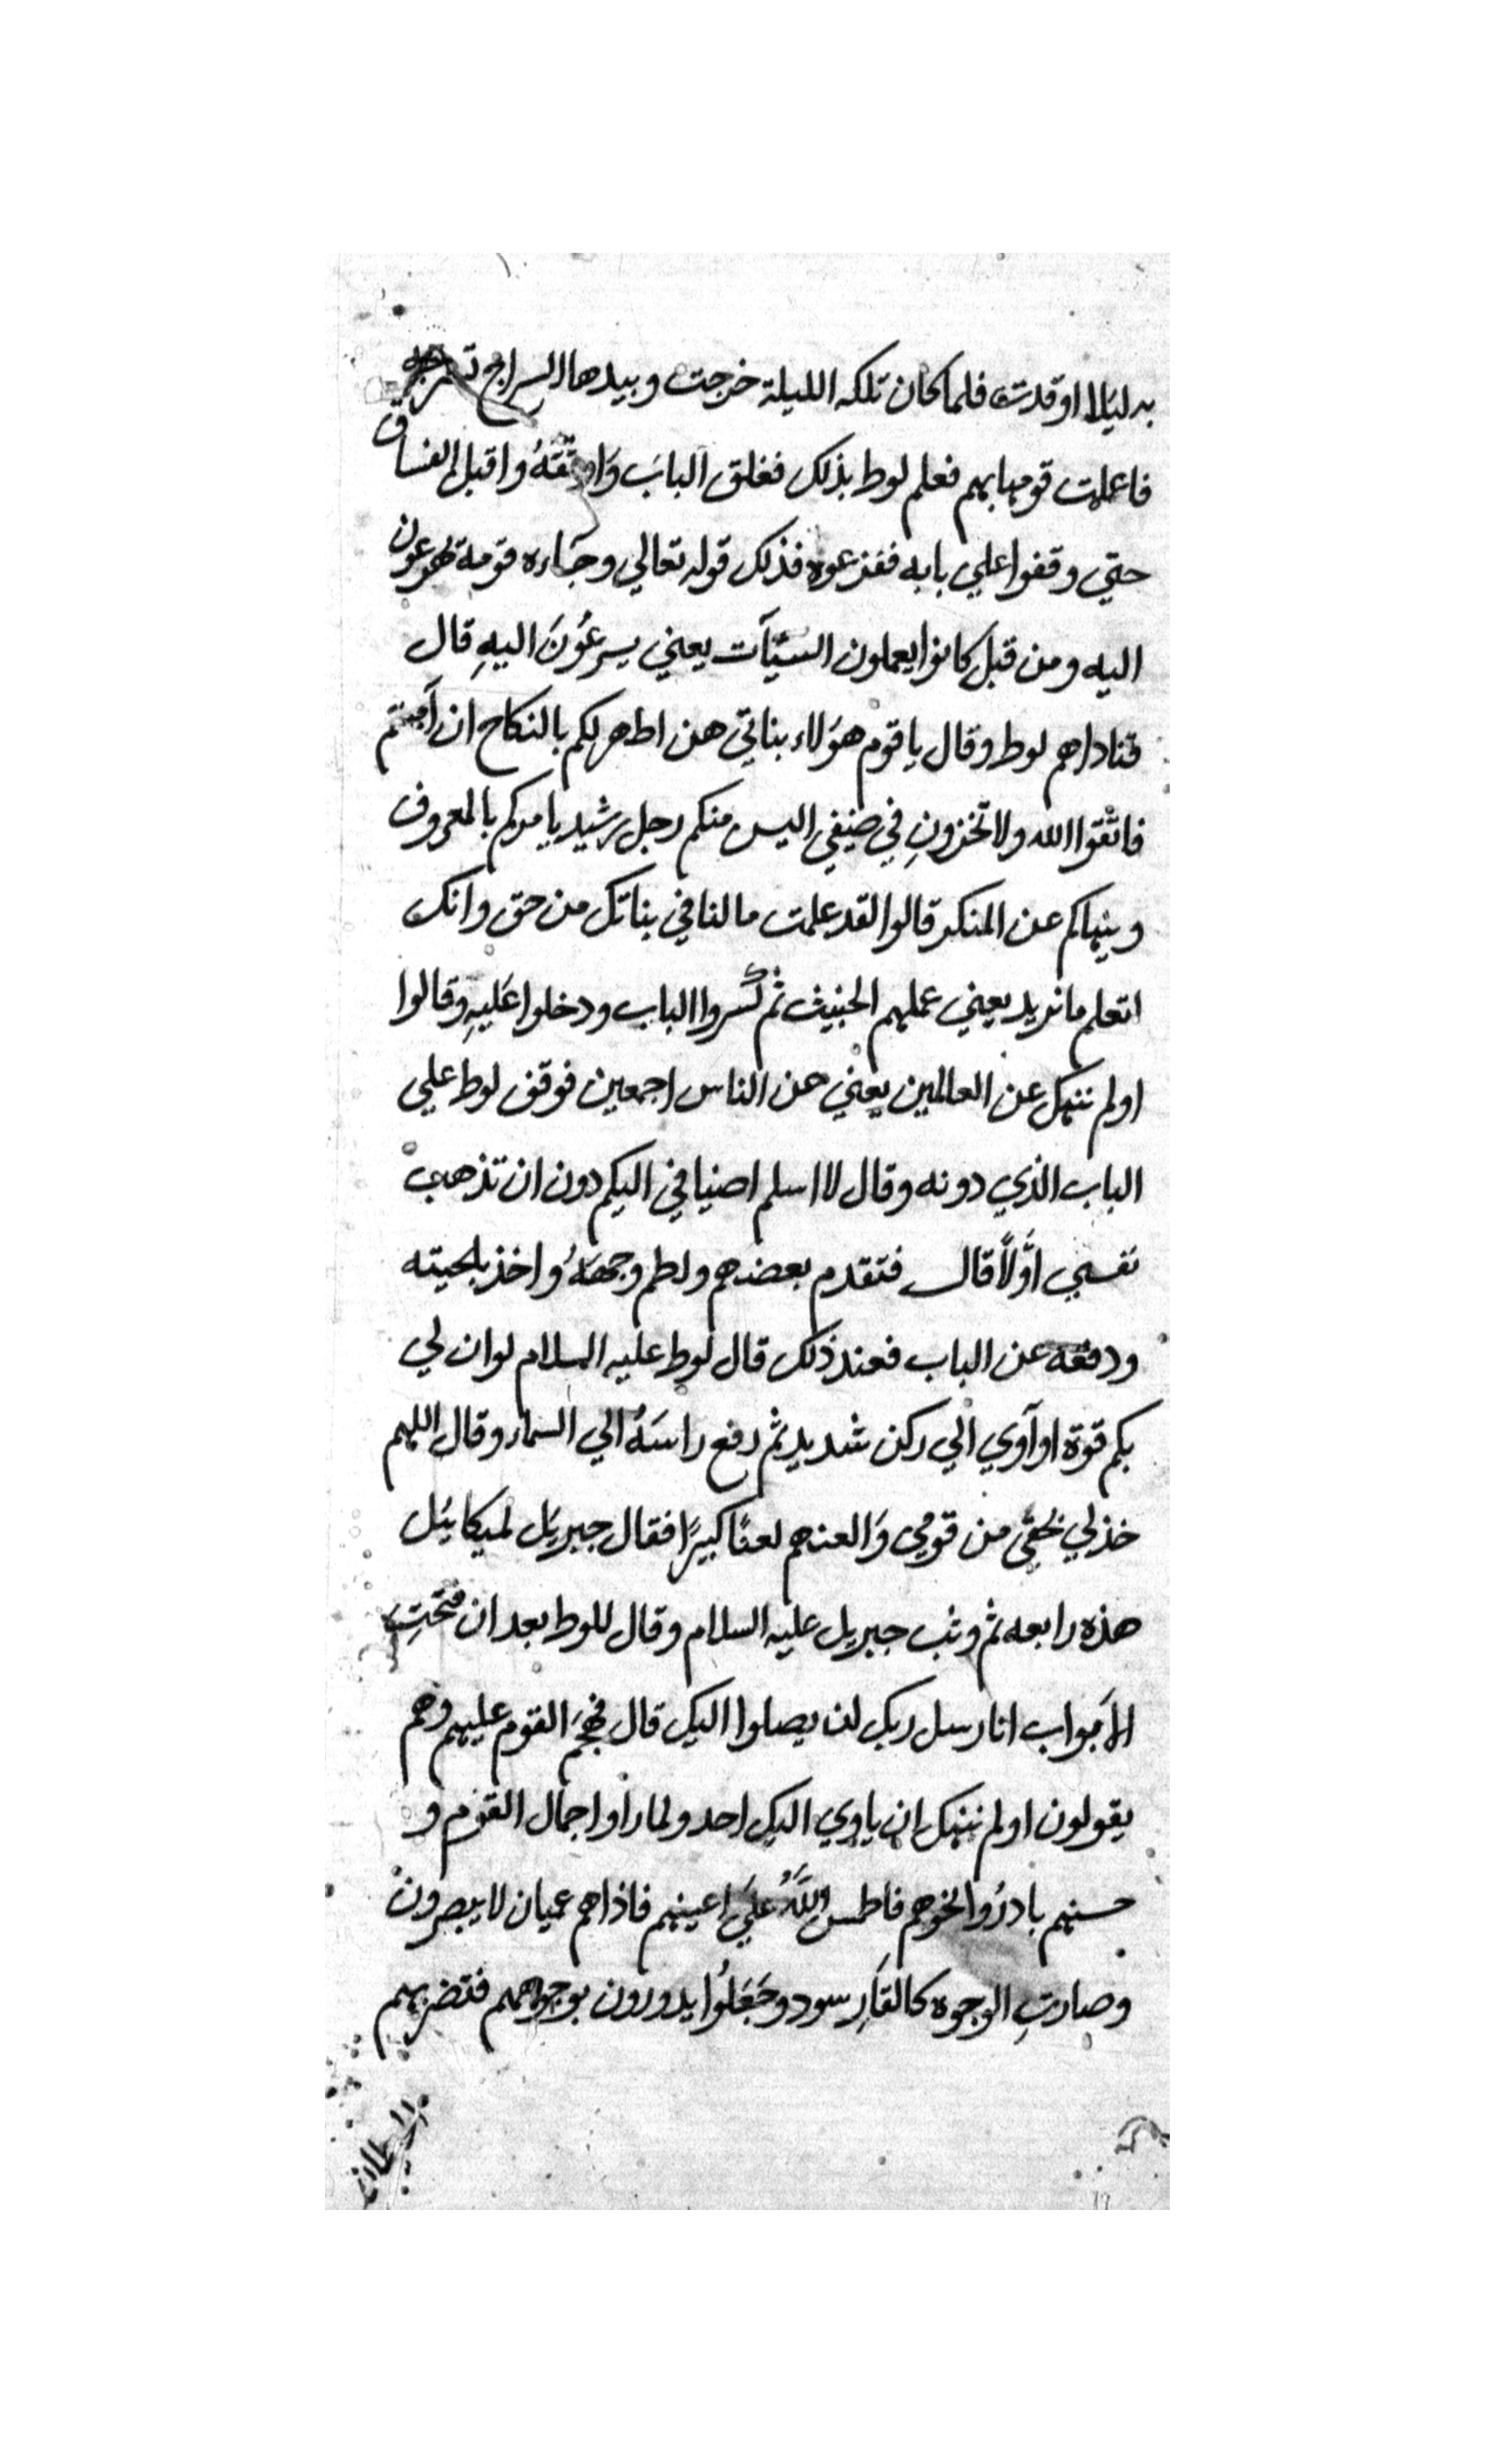 به ليلا اوقدت فلما كان تلك الليلة خرجت وبيدها السراج
فاعلمت قومها بهم فعلم لوط بذلك فغلق البابَ وَاوثقَهُ واقبل الفساق
حتي وقفوا علي بابه ففزعوه فذلك قوله تعالي وجَاءه قومه يهرعون
اليه ومن قبل كانوا يعملون السيَّآت يعني يسرعُونَ اليهِ قال
فناداهم لوط وقال يا قوم هؤلاء بناتي هن اطهر لكم بالنكاح ان آمنتم
فاتّقوا الله ولا تخزونِ في ضيفي اليس منكم رجل رشيد يامركم بالمعروف
وينهاكم عن المنكر قالوا لقد علمت ما لنا في بناتك من حق وانك
لتعلم ما نريد يعني عملهم الخبيث ثم كسروا الباب ودخلوا عَليهِ وقالوا
اولم ننهك عن العالمين يعني عن الناس اجمعين فوقف لوط علي
الباب الذي دونه وقال لا اسلم اضيافي اليكم دون ان تذهب
نفسي اوَّلاً قال فتقدم بعضهم ولطم وجههَُ واخذ بلحيته
ودفعه عن الباب فعند ذلك قال لوط عليه السلام لو ان لي
بكم قوة او آوي الي ركن شديد ثم رفع راسَهُ الي السماء وقال اللهم
خذ لي بحقي من قومي وَالعنهم لعنًا كبيرًا فقال جبريَل لميكايَل
هذه رابعه ثم وثب جبريل عليه السلام وقال للوط بعد ان فتحتِ
الاَبواب انا رسل ربك لن يصلوا اليك قال فهجمَ القوم عليهم وهم
يقولون اولم ننهك ان ياوي اليك احد ولما راوا جمال القوم و
حسنهم بادرُوا نحوهم فاطمس اللَّهُ عليَ اعينهم فاذا هم عميان لا يبصرون
وصارتِ الوجوه كالقَارِ سود وجَعَلُوا يدورون بوجوههم فتضربهم